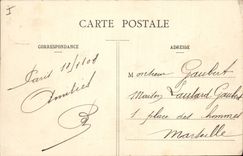 CARTE POSTALE
CORRESPONDANCE
ADRESSE
Paris 10/1/08
Monsieur Gaubert
Maison Laubard-Gaubert
1 place des hommes
Marseille